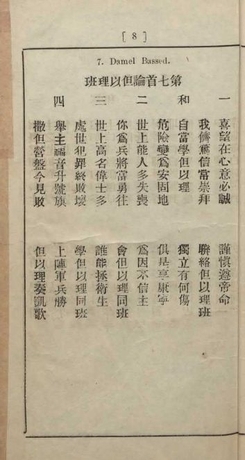 [ 8 ]
7. Damel Bassed.
第七首論但以理班
一 喜望在心意必誠 謹慎遵帝命
我儕篤信常崇拜 聯絡但以理班
和 自當學但以理 獨立有何傷
危險變爲安固地 俱是享康寧
二 世上能人多失喪 爲因不信主
你爲兵將當勇往 會但以理同班
三 世上高名偉士多 誰能拯衛生
處世犯罪終敗壞 學但以理同班
四 舉主福音升號旗 上陣軍兵勝
撒但營盤今見敗 但以理奏凱歌